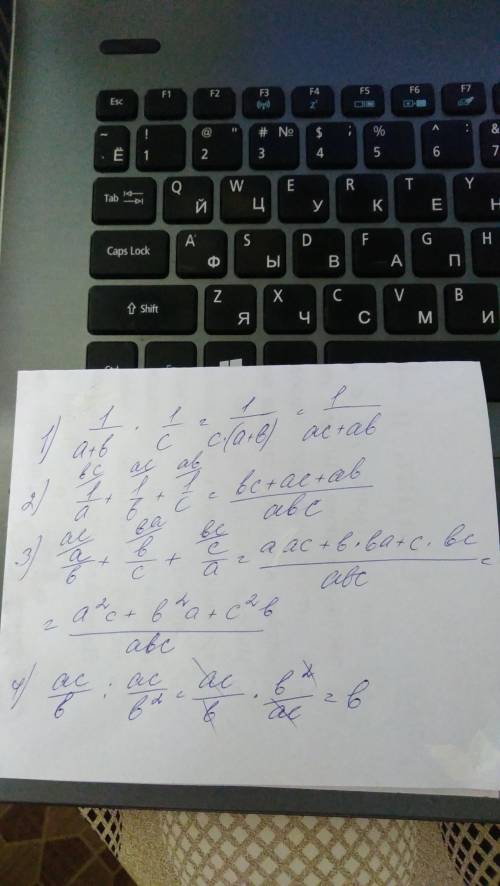 Esc F1 F2 F3 F4 F5 F6 F7
~ Ё ! 1 @ " 2 # № 3 $ ; 4 % 5 ^ : 6 & 7
Tab Q Й W Ц E У R К T Е Y Н
Caps Lock A Ф S Ы D В F А G П H
⇧ Shift Z Я X Ч C С V М B И
1) 1/(a+b) · 1/c = 1/(c·(a+b)) = 1/(ac+ab)
bc ac ab
2) 1/a + 1/b + 1/c = (bc+ac+ab)/abc
ac ba bc
3) a/b + b/c + c/a = (a ac + b·ba + c·bc)/abc =
= (a²c + b²a + c²b)/abc
4) ac/b : ac/b² = ac/b · b²/ac = b